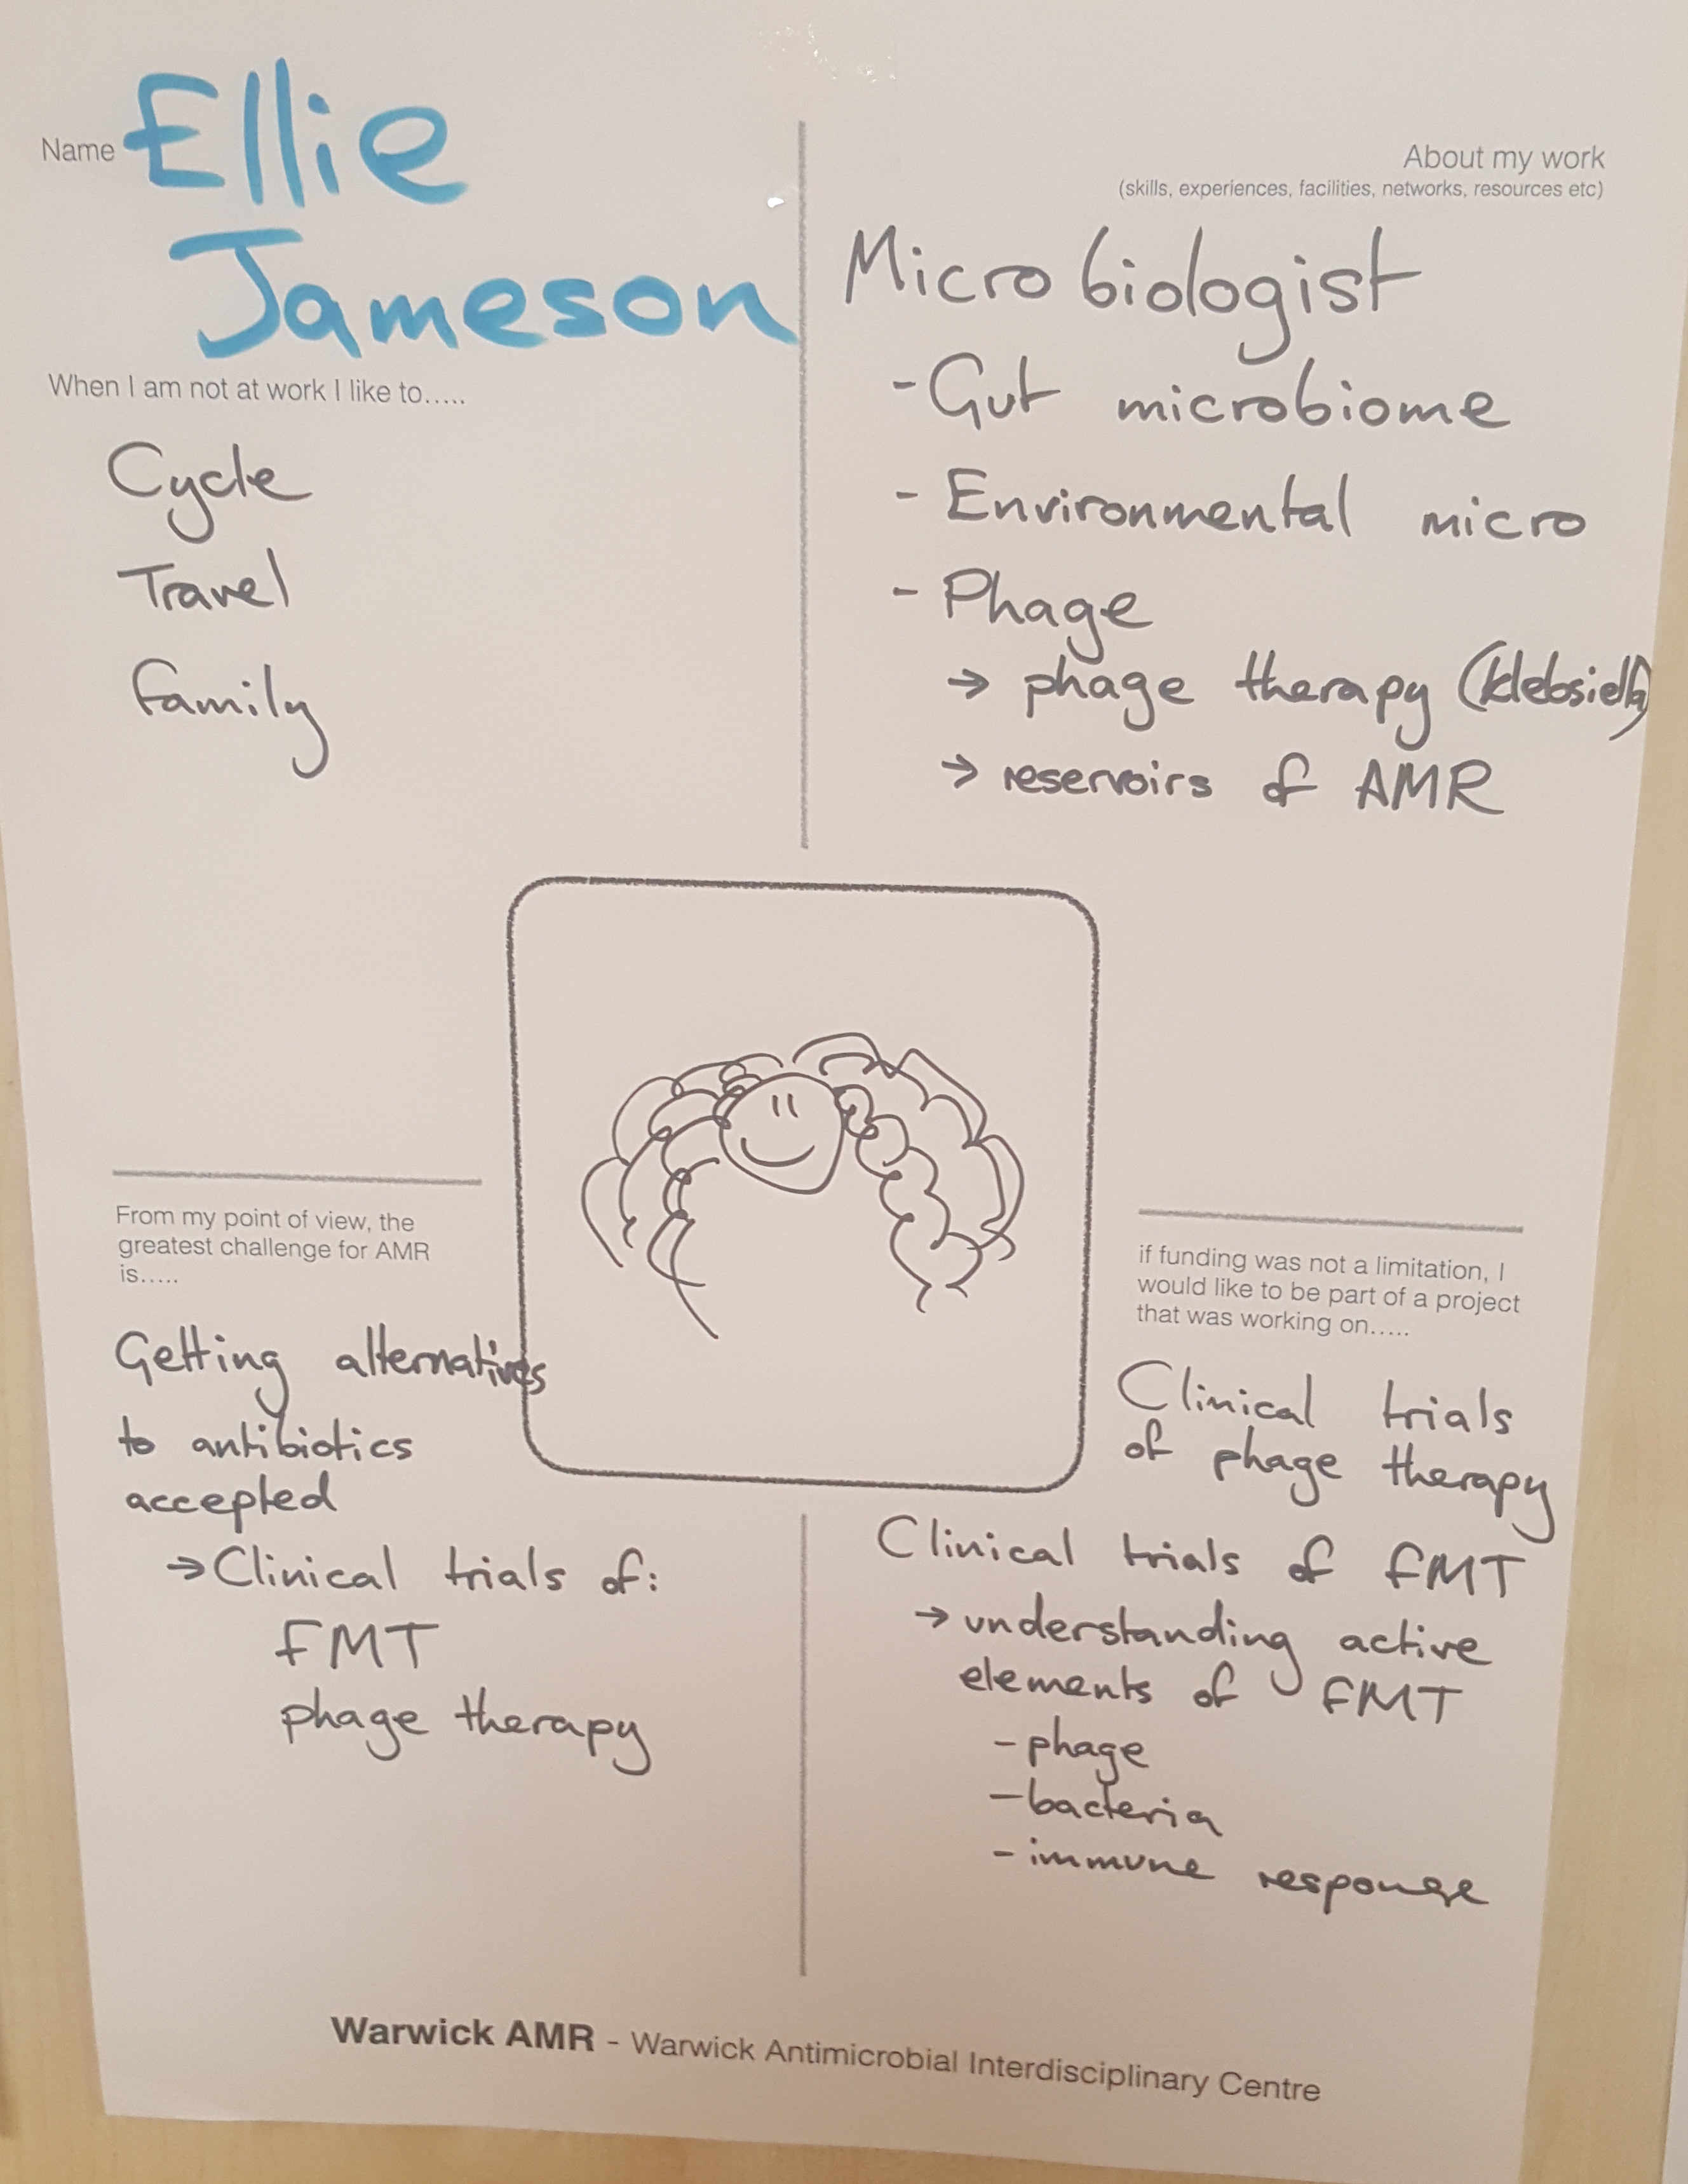 Name Ellie
Jameson
When I am not at work I like to.....
Cycle
Travel
Family
About my work
(skills, experiences, facilities, networks, resources etc)
Microbiologist
- Gut microbiome
- Environmental micro
- Phage
→ phage therapy (klebsiella)
→ reservoirs of AMR
From my point of view, the
greatest challenge for AMR
is.....
Getting alternatives
to antibiotics
accepted
→ Clinical trials of:
FMT
phage therapy
if funding was not a limitation, I
would like to be part of a project
that was working on.....
Clinical trials
of phage therapy
Clinical trials of FMT
→ understanding active
elements of FMT
- phage
- bacteria
- immune response
Warwick AMR - Warwick Antimicrobial Interdisciplinary Centre